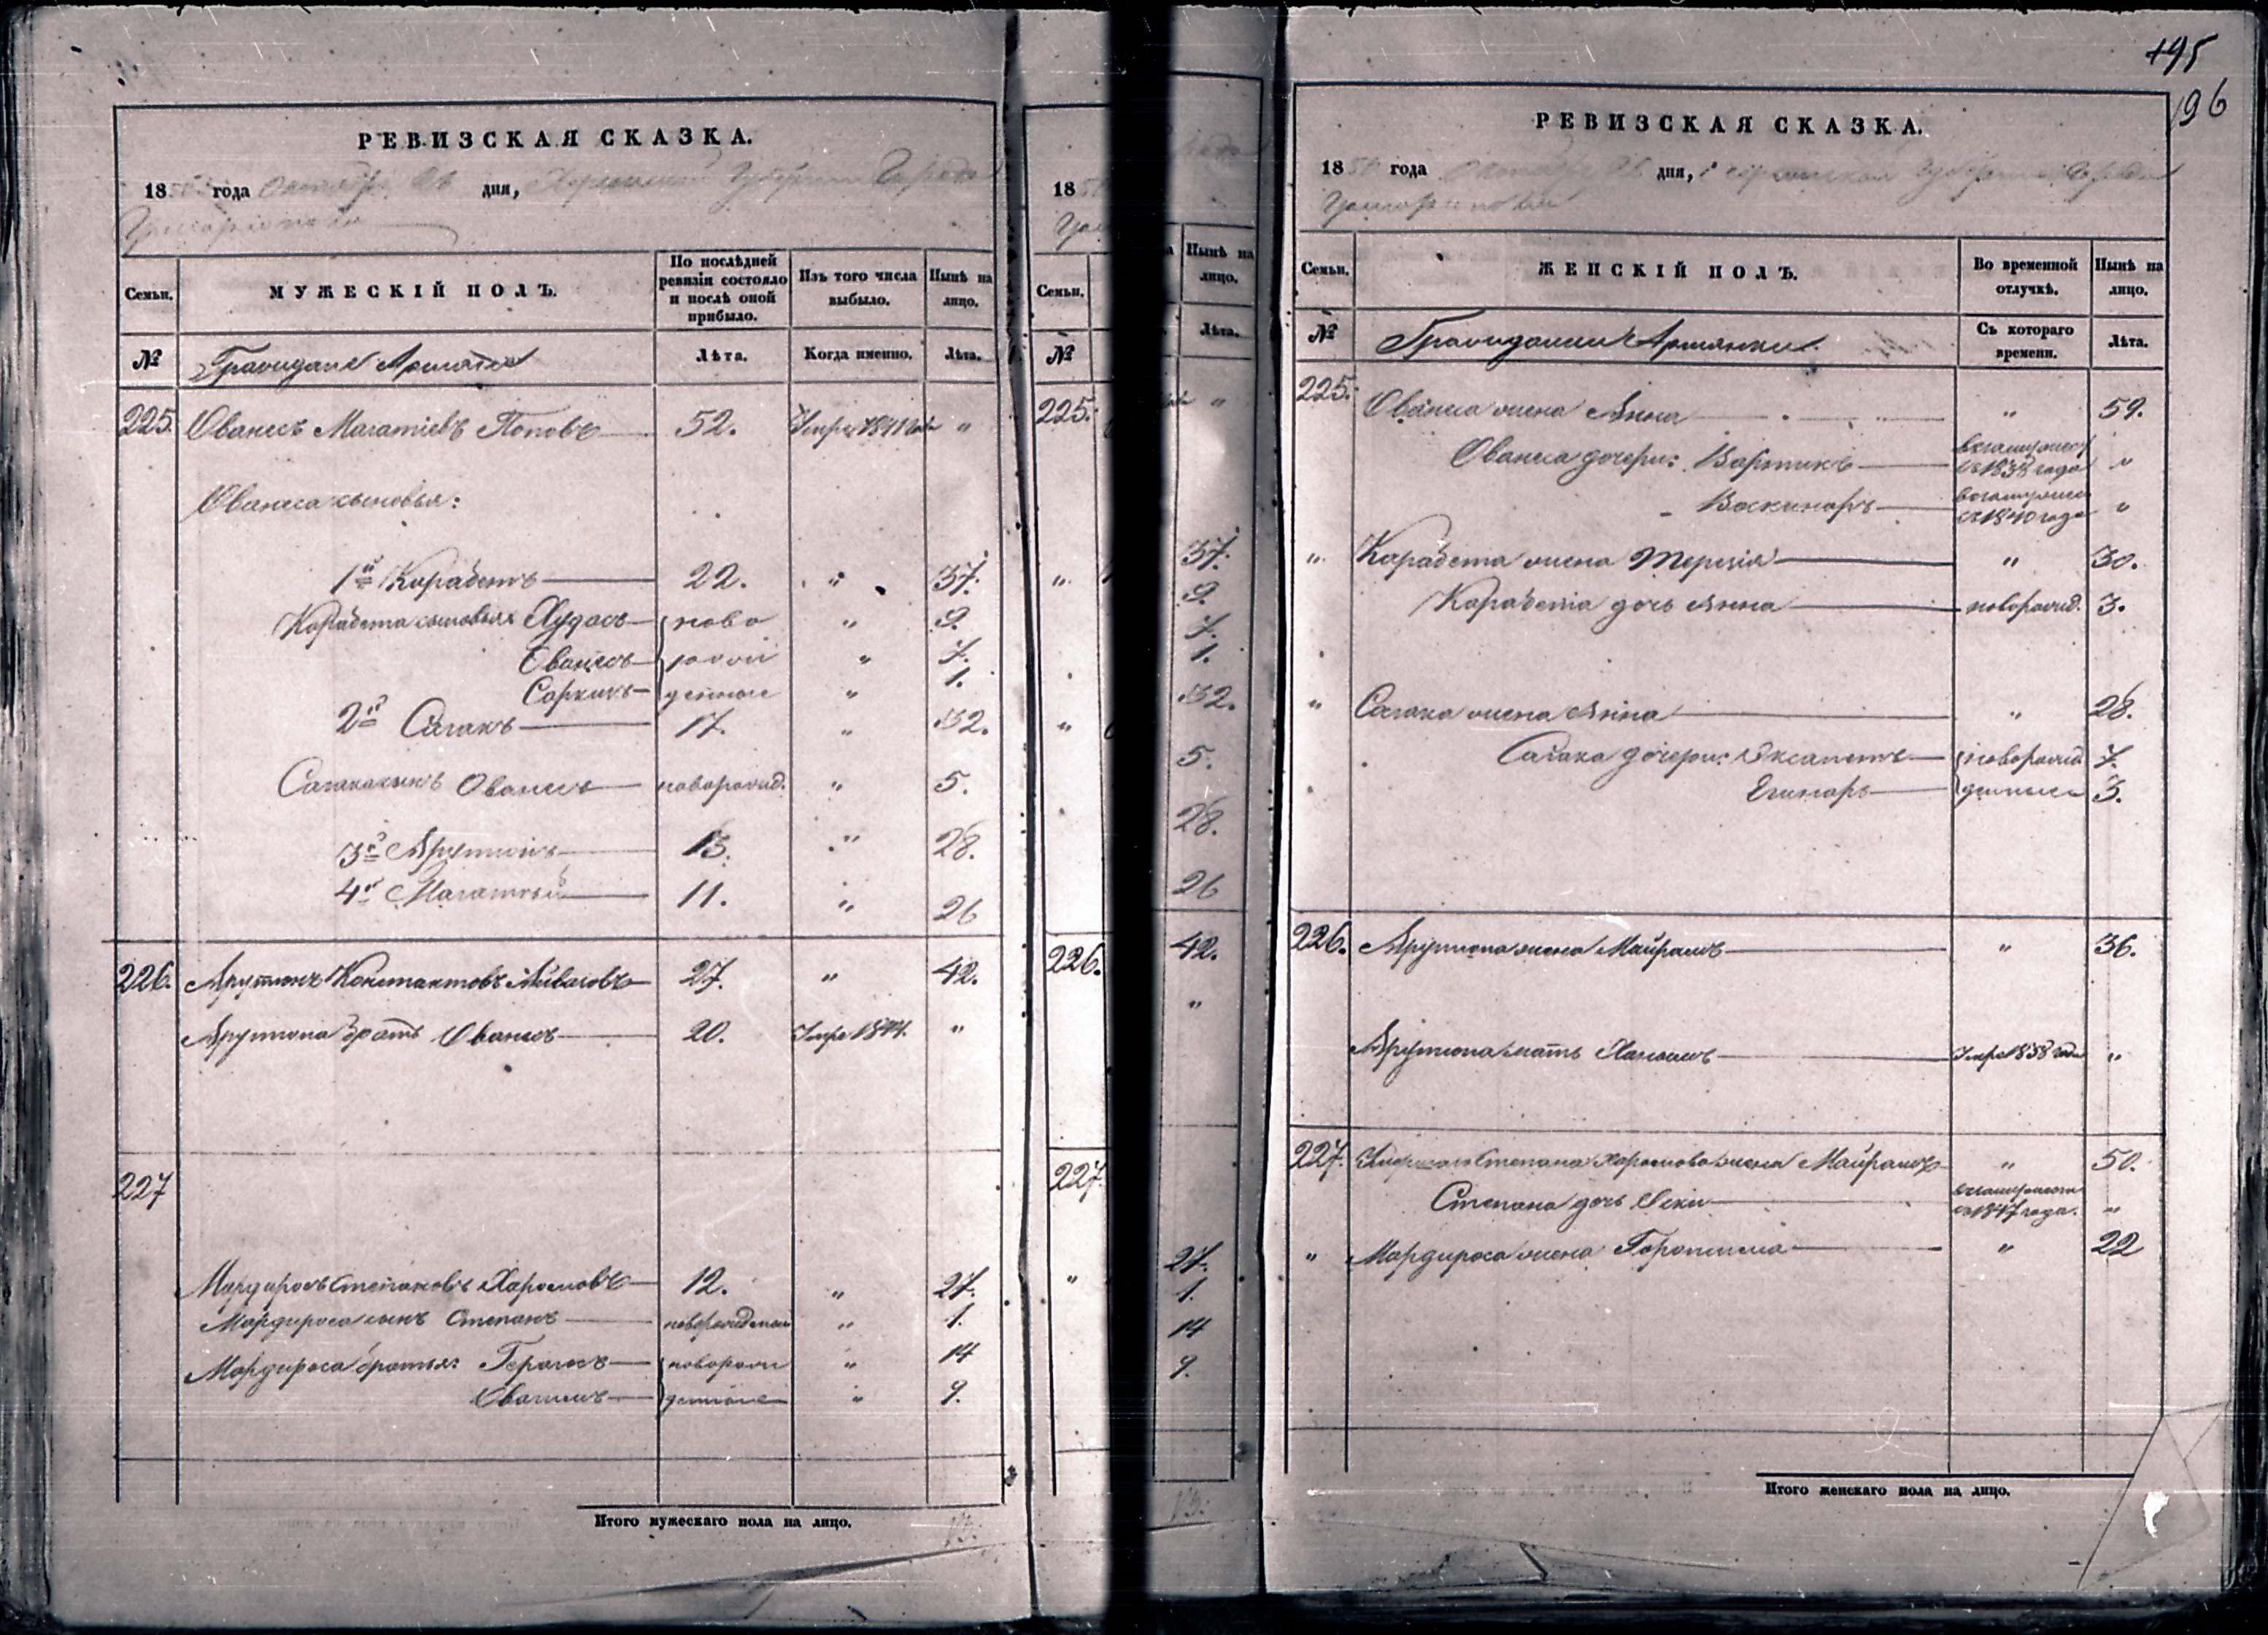 РЕВИЗСКАЯ СКАЗКА.
1850 года Октября 26 дня, Херсонской Губернии Города
Григориополя
Семьи.
МУЖЕСКІЙ ПОЛЪ.
По послѣдней ревизіи состояло и послѣ оной прибыло.
Изъ того числа выбыло.
Нынѣ на лицо.
№
Граждане Армяне
Лѣта.
Когда именно.
Лѣта.
225. Ованесъ Магатіевъ Поповъ 52. Умре 1841 года "
Ованеса сыновья:
1й Карабетъ 22. " 37.
Карабета сыновья: ново " 9.
Ованесъ рож " 7.
Саркисъ денные " 1.
2й Сагакъ 17. " 32.
Сагака сынъ Ованесъ новорожд. " 5.
3й Арутюнъ 13. " 28.
4й 11. " 26
226. Арутюнъ Айвазовъ 27. " 42.
Арутюна братъ Ованесъ 20. Умре 1844. "
227
Мардиросъ Степановъ 12. " 27.
Мардироса сынъ Степанъ новорожденый " 1.
Мардироса братья: новорож " 14
Ованесъ денные " 9.
Итого мужескаго пола на лицо.
13.
18
Семьи.
№
225.
"
"
226.
227.
"
Нынѣ на лицо.
Лѣта.
"
37.
9.
7.
1.
32.
5.
28.
26
42.
"
27.
1.
14
9.
13.
195
196
РЕВИЗСКАЯ СКАЗКА.
1850 года Октября 26 дня, Херсонской Губерніи Города
Григориополя
Семьи.
ЖЕНСКІЙ ПОЛЪ.
Во временной отлучкѣ.
Нынѣ на лицо.
№
Гражданки Армянки
Съ котораго времени.
Лѣта.
225. Ованеса жена Анна " 59.
Ованеса дочери: Вартикъ въ замужест. съ 1838 года "
Воскинаръ въ замужест. съ 1840 года "
" Карабета жена Терезія " 30.
Карабета дочь Анна новорожд. 3.
" Сагака жена Анна " 28.
Сагака дочери: новорожд 7.
Егинаръ денные 3.
226. Арутюна жена Майрамъ " 36.
Арутюна мать Умре 1838 года "
227. Степана жена Майрамъ " 50.
Степана дочь въ замужест. съ 1847 года. "
" Мардироса жена " 22
Итого женскаго пола на лицо.